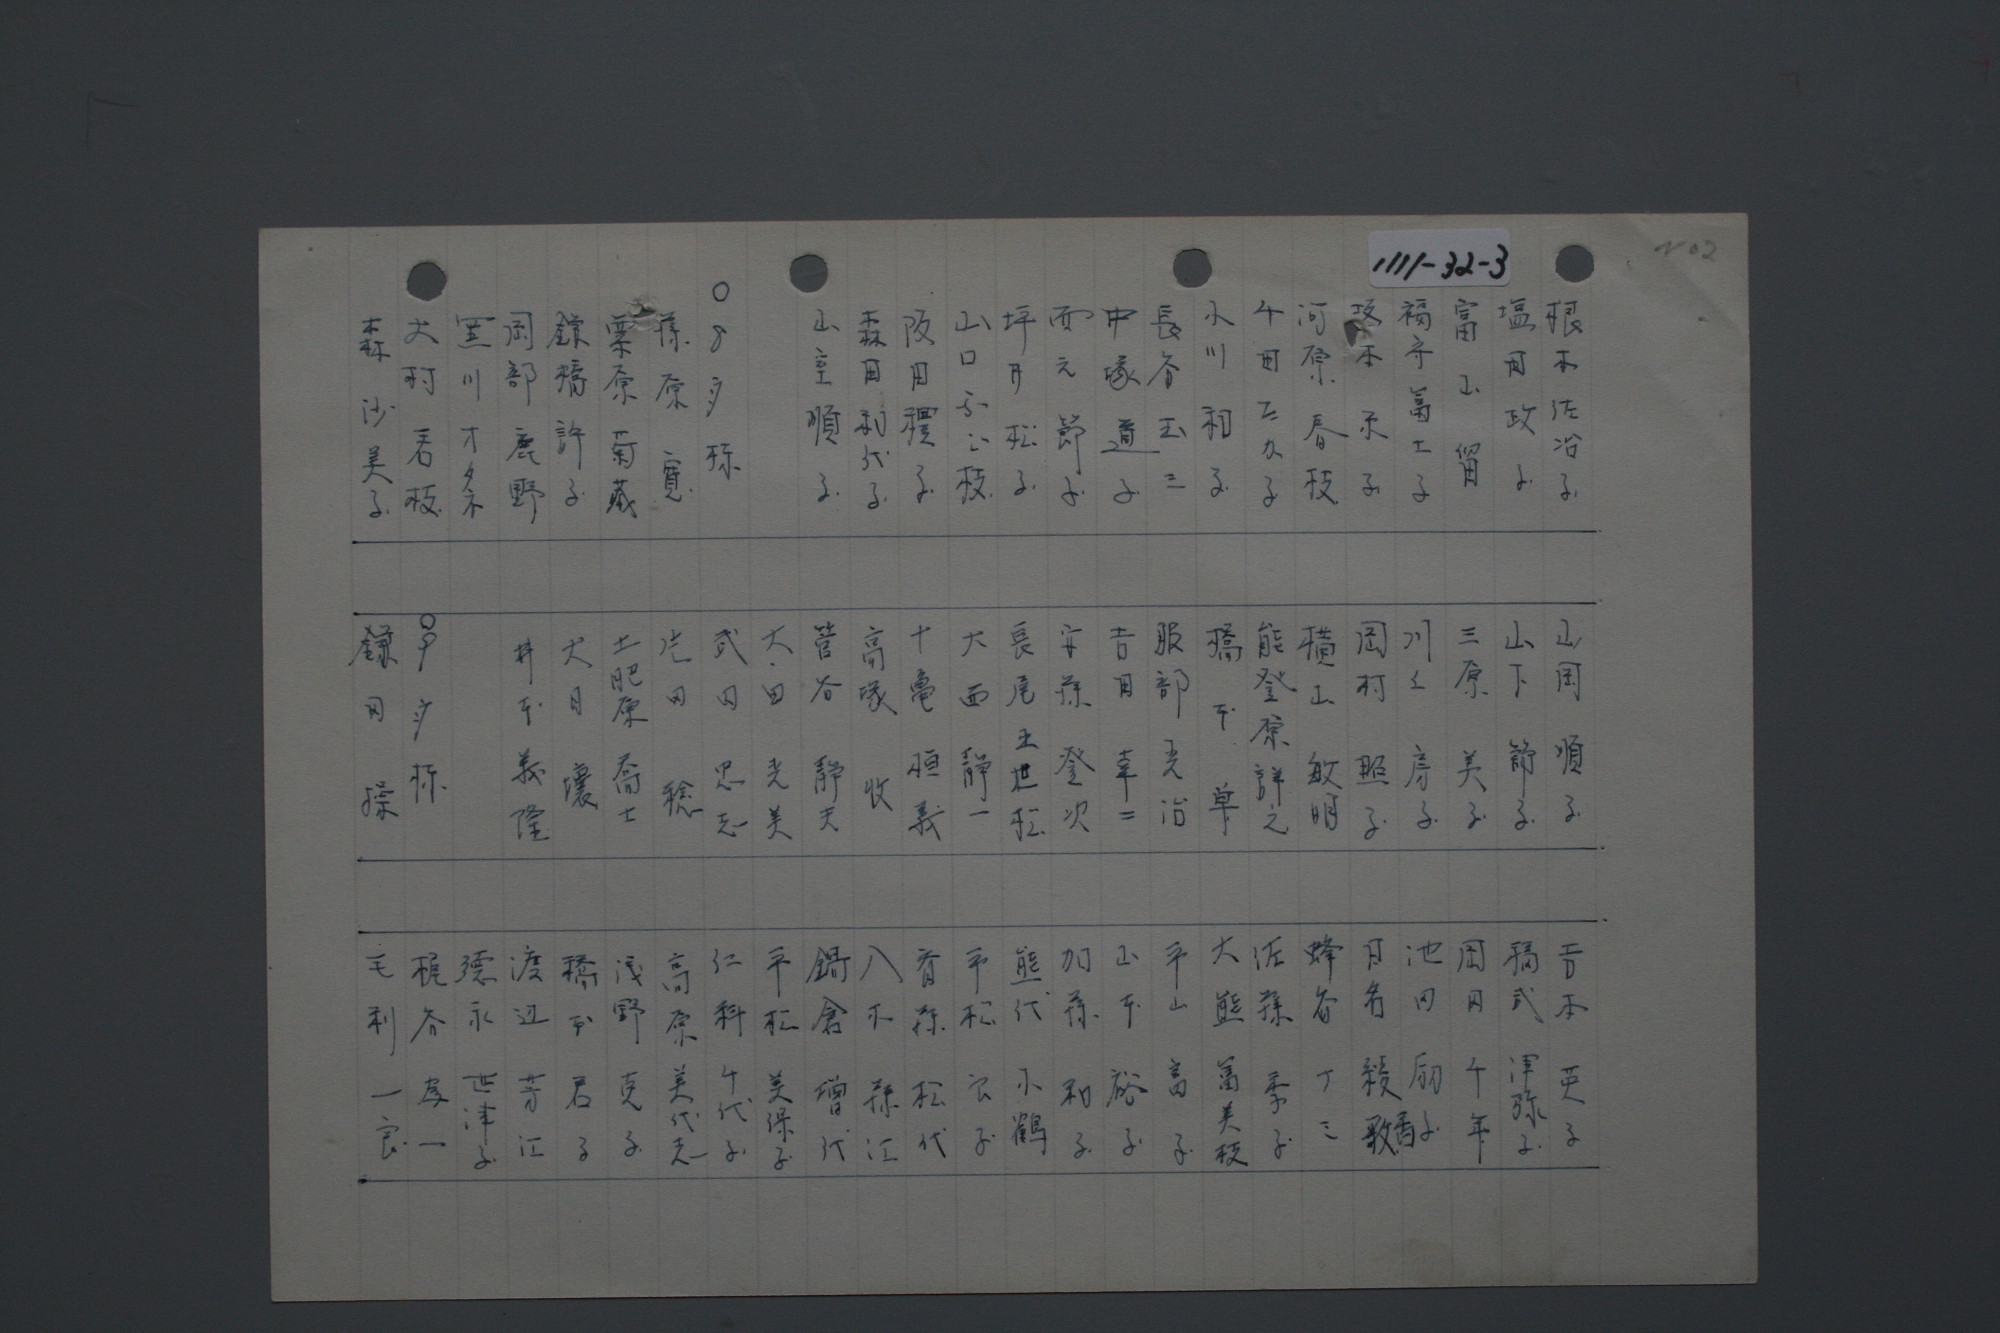 NO2
1111-32-3
根木佐冶子
塩田政子
富山留
福守富士子
坂本末子
河原春枝
千田五九子
小川和子
長谷玉三
中塚道子
西元節子
坪井松子
山口ふじ枝
阪田禮子
森田利代子
山室順子
○8夕様
藤原寛
栗原菊蔵
鎌橋許子
岡部鹿野
黒川才条
大村君枝
森沙美子
山岡順子
山下節子
三原美子
川上房子
岡村照子
横山敏明
能登原詳之
橋本草
服部光治
吉田幸二
安藤登次
長尾玉世松
大西静一
十亀恒義
高塚收
管谷静夫
大田光美
武田忠志
片田稔
土肥原喬士
犬目壤
井本義隆
○9夕様
鎌田操
吉本英子
稿弐渾弥子
岡田千年
池田朋子
日名綾歌香
蜂谷丁三
佐藤季子
大熊富美枝
平山富子
山本裕子
加藤和子
熊代小鶴
平松良子
斉藤松代
八木藤江
鍋倉増代
平松美保子
仁科千代子
高原美代志
浅野克子
橋本君子
渡辺芳江
德永世津子
梶谷孝一
毛利一良